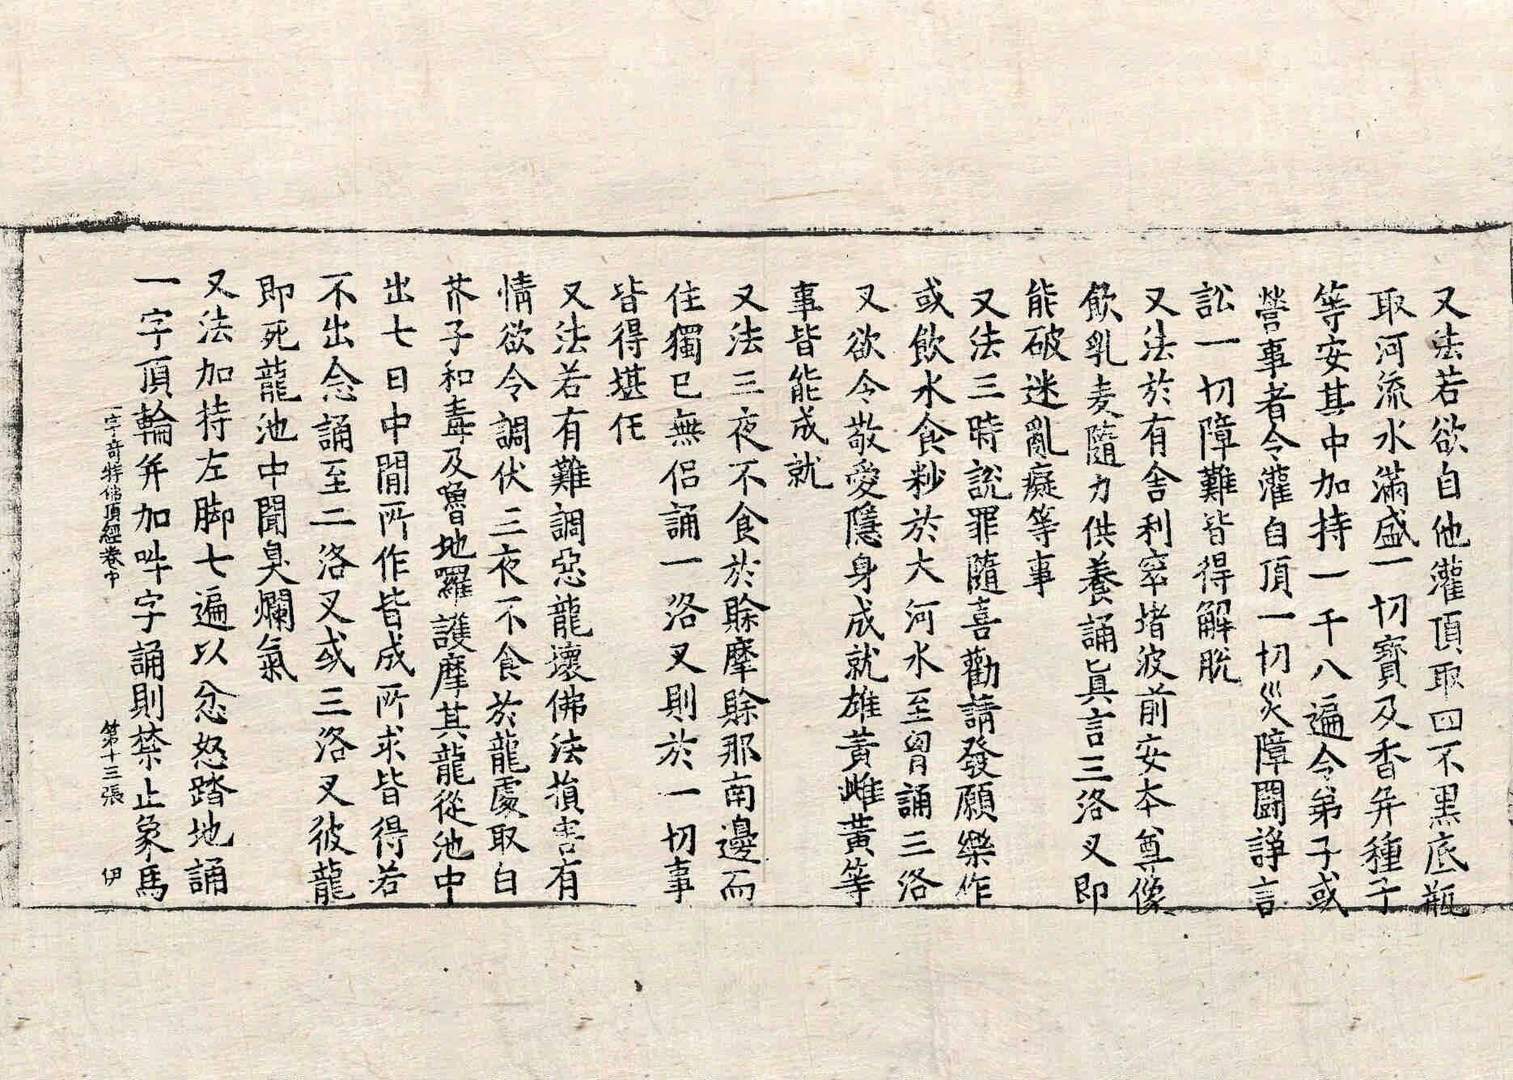 又法若欲自他灌頂取四不黑底瓶
取河流水滿盛一切寶及香并種子
等安其中加持一千八遍令弟子或
營事者令灌自頂一切災障鬪諍言
訟一切障難皆得解脫
又法於有舍利窣堵波前安本尊像
飲乳麦隨力供養誦眞言三洛叉即
能破迷亂癡等事
又法三時說罪隨喜勸請發願樂作
或飲水食麨於大河水至胷誦三洛
叉欲令敬愛隱身成就雄黃雌黃等
事皆能成就
又法三夜不食於賒摩賒那南邊而
住獨已無侶誦一洛叉則於一切事
皆得堪任
又法若有難調惡龍壞佛法損害有
情欲令調伏三夜不食於龍處取白
芥子和毒及嚕地羅護摩其龍從池中
出七日中閒所作皆成所求皆得若
不出念誦至二洛叉或三洛叉彼龍
即死龍池中聞臭爛氣
又法加持左脚七遍以忿怒踏地誦
一字頂輪并加吽字誦則禁止象馬
一字奇特佛頂經卷中 第十三張 伊